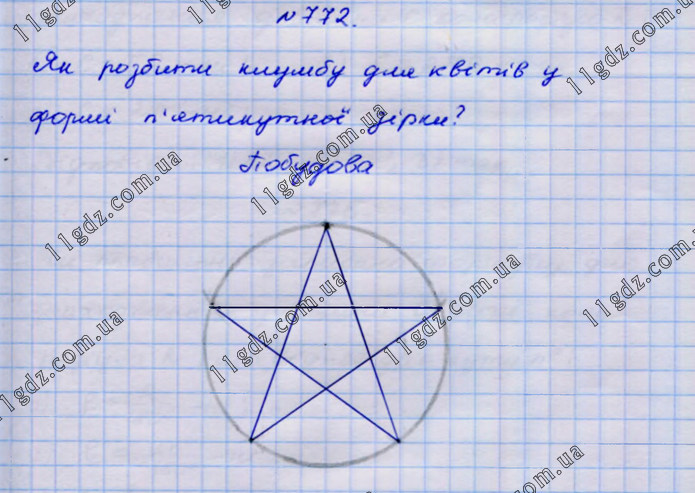 №772.
Як розбити клумбу для квітів у
формі п'ятикутної зірки?
Побудова
11gdz.com.ua
11gdz.com.ua
11gdz.com.ua
11gdz.com.ua
11gdz.com.ua
11gdz.com.ua
11gdz.com.ua
11gdz.com.ua
11gdz.com.ua
11gdz.com.ua
11gdz.com.ua